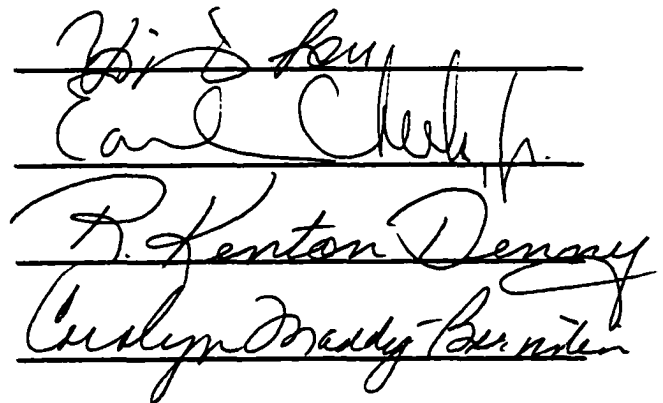 Earl Cheek, Jr.
R. Kenton Denny
Carolyn Maddy-Bernstein